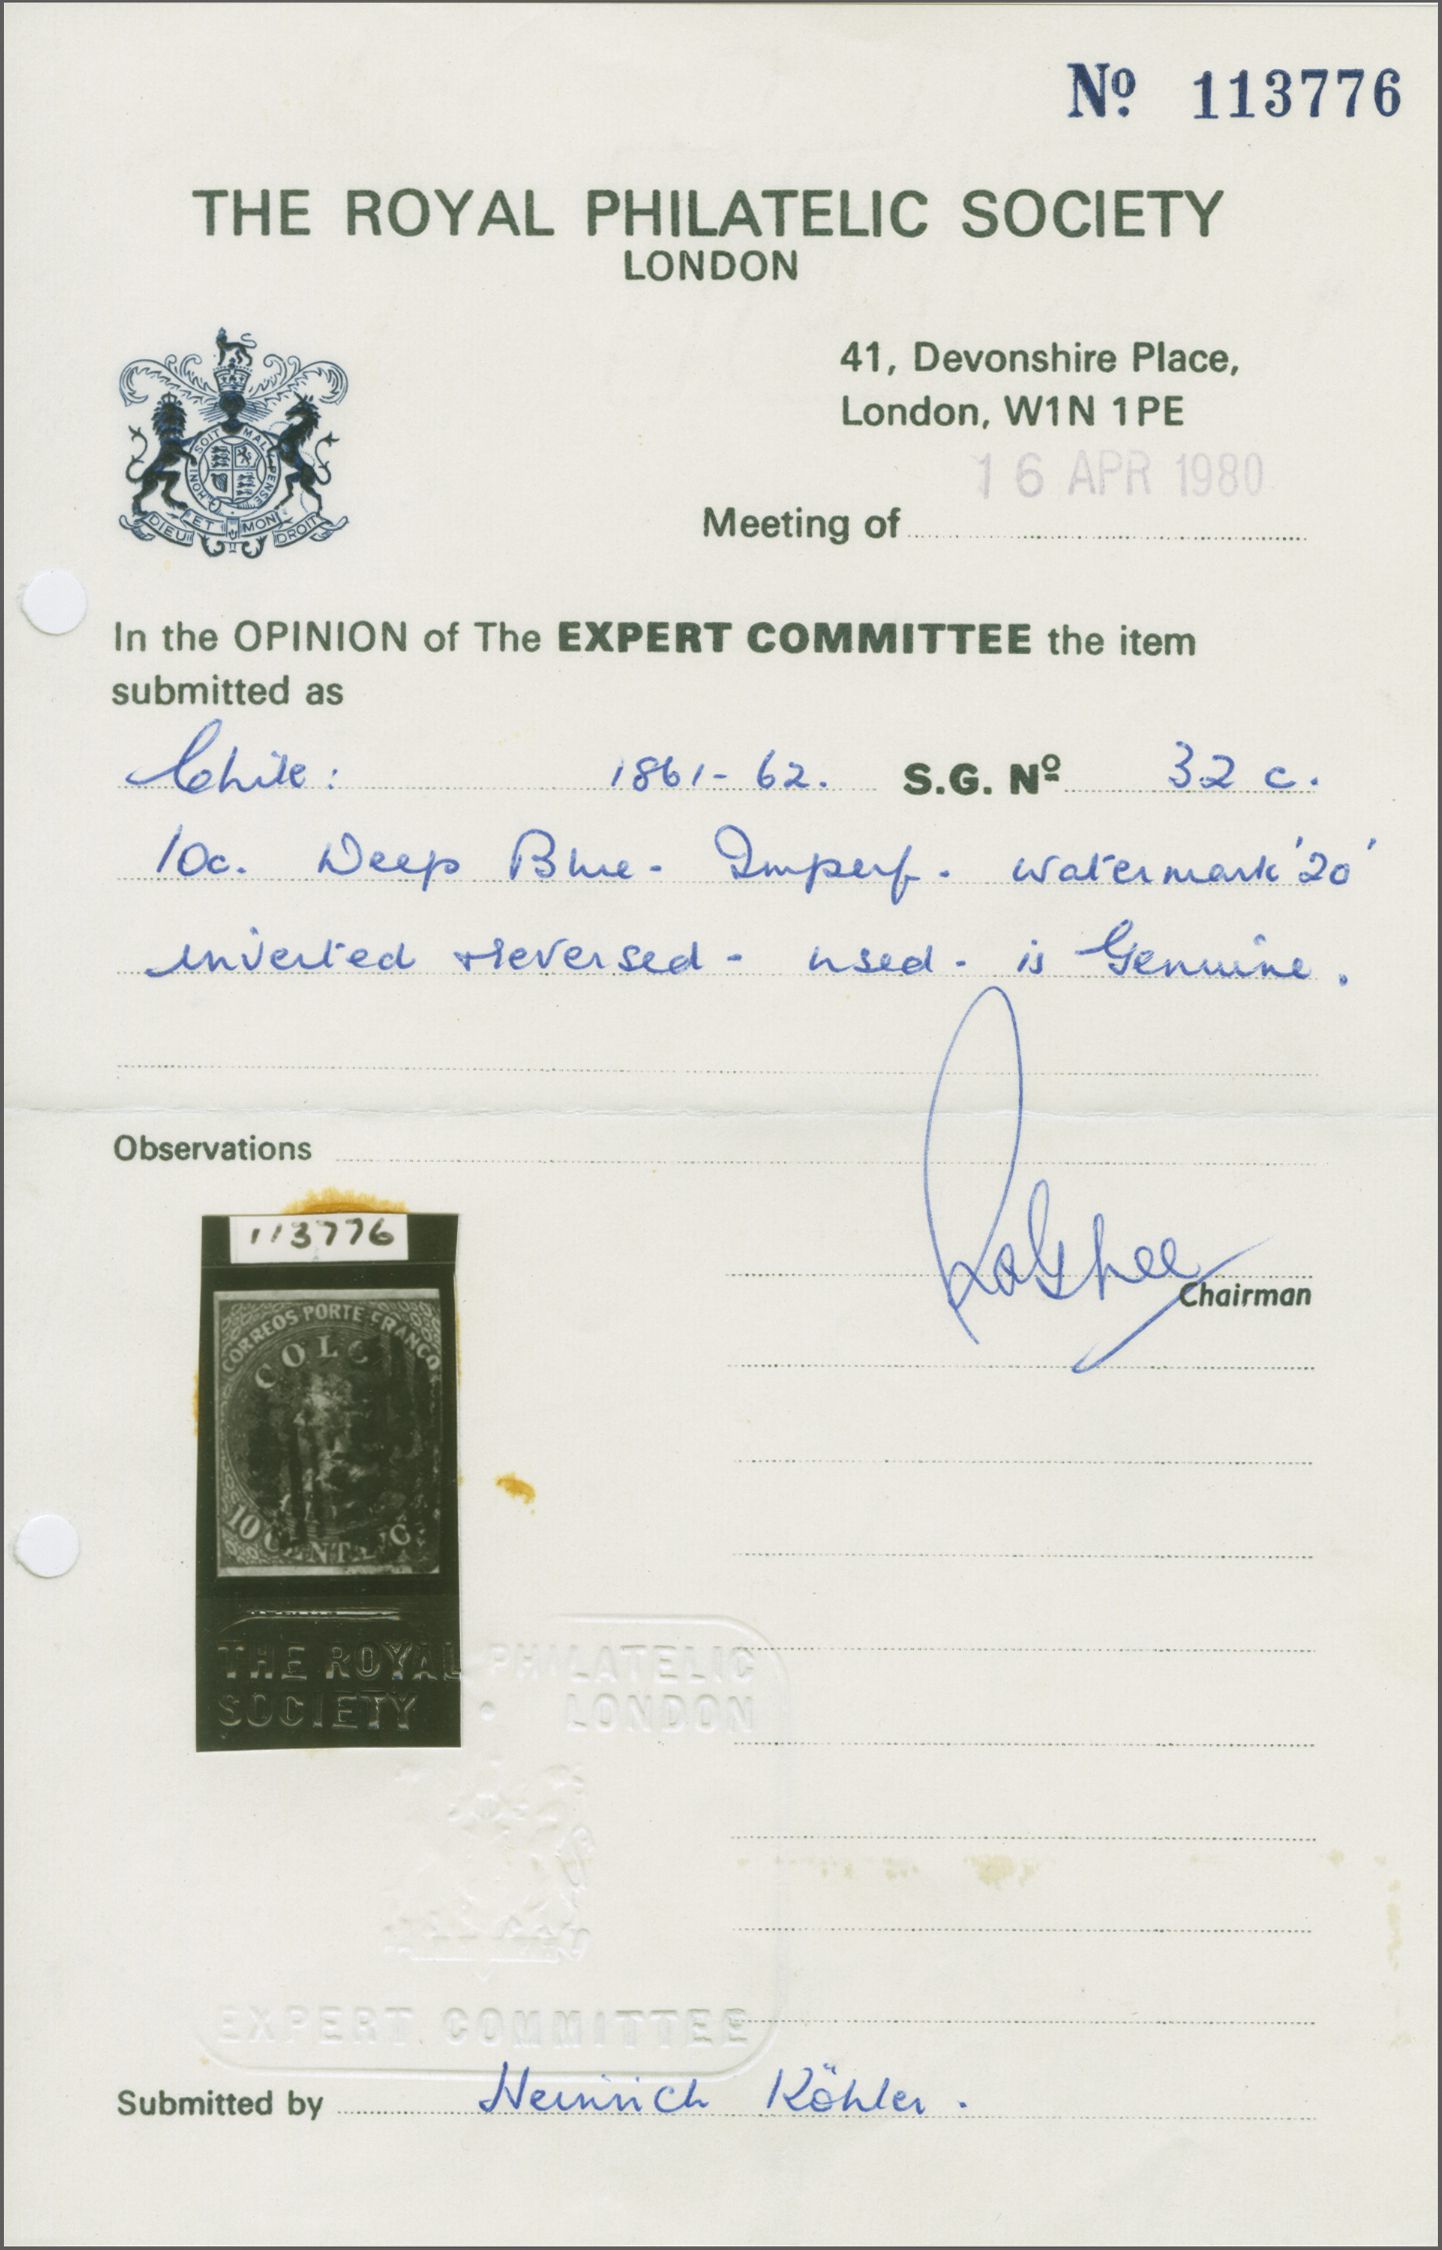 Nº 113776
THE ROYAL PHILATELIC SOCIETY
LONDON
SOIT MAL
HONI PENSE
DIEU ET MON DROIT
41, Devonshire Place,
London, W1N 1PE
16 APR 1980
Meeting of
In the OPINION of The EXPERT COMMITTEE the item
submitted as
Chile: 1861-62. S.G. Nº 32 c.
10c. Deep Blue - Imperf - watermark '20'
inverted + reversed - used - is Genuine.
Observations
Chairman
113776
CORREOS PORTE FRANCO
COLO
10 CENTAVO
THE ROYAL PHILATELIC
SOCIETY • LONDON
EXPERT COMMITTEE
Submitted by Heinrich Köhler.